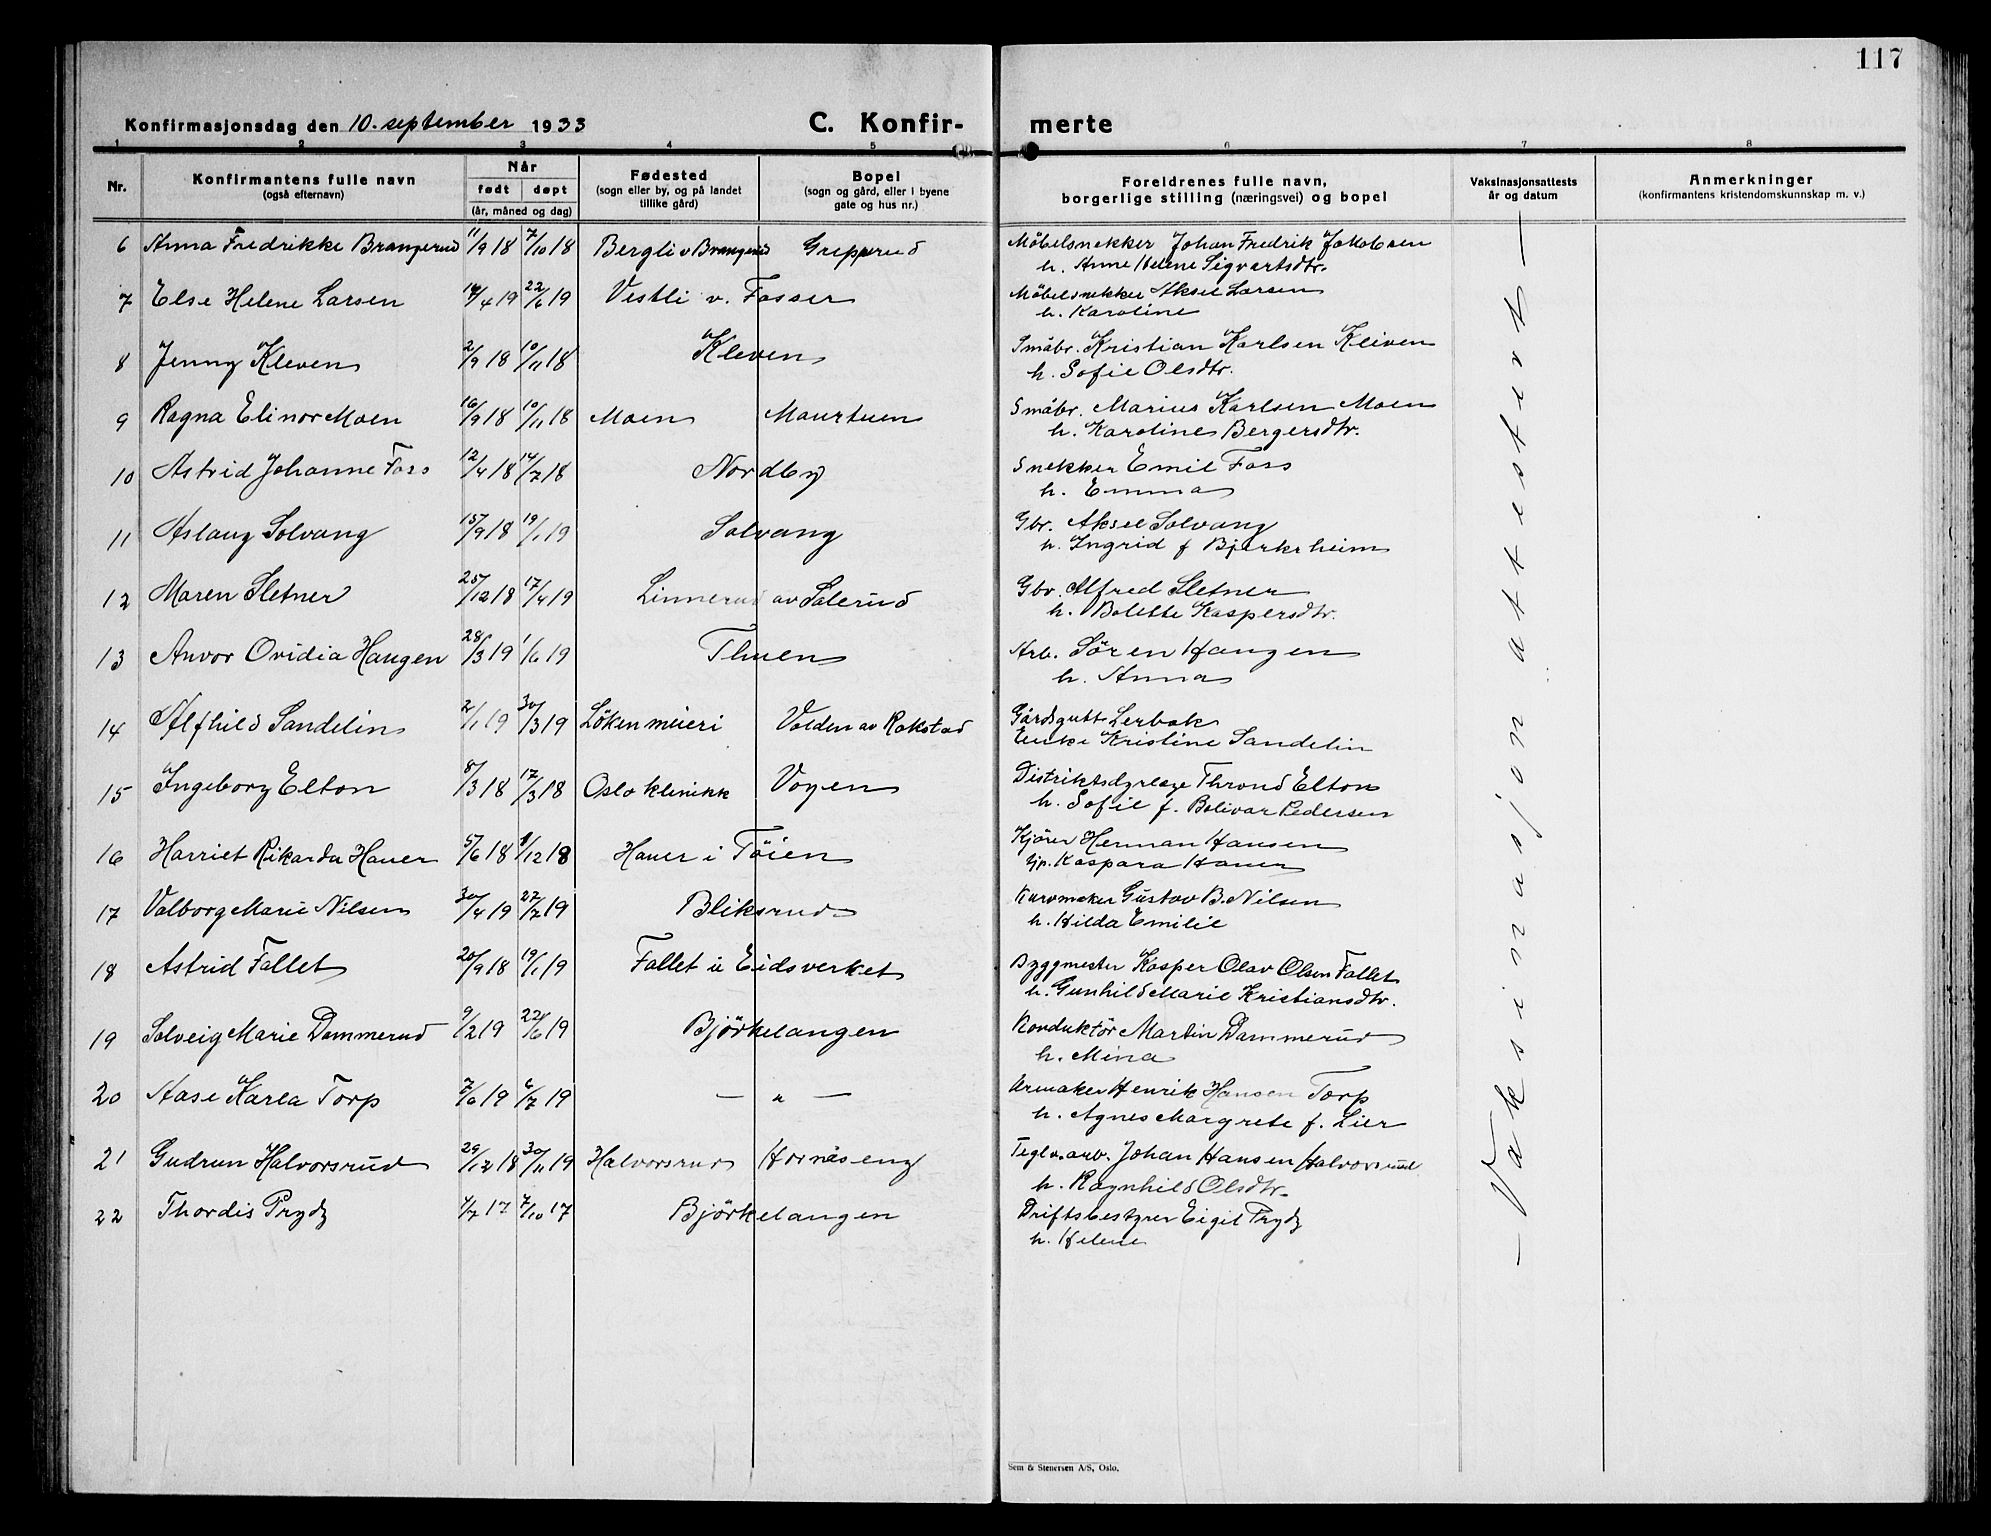 117
Konfirmasjonsdag den 10. september 1933 C. Konfir- merte
1 2 3 4 5 6 7 8
Nr. Konfirmantens fulle navn (også efternavn) Når født døpt (år, måned og dag) Fødested (sogn eller by, og på landet tillike gård) Bopel (sogn og gård, eller i byene gate og hus nr.) Foreldrenes fulle navn, borgerlige stilling (næringsvei) og bopel Vaksinasjonsattests år og datum Anmerkninger (konfirmantens kristendomskunnskap m. v.)
6 Anna Fredrikke Brangerud 11/9 18 7/10 18 Bergli v Brangerud Grepperud Möbelsnekker Johan Fredrik Jakobsen
h. Anne Helene Sigvartsdtr.
7 Else Helene Larsen 14/4 19 22/6 19 Vestli v. Fosser Möbelsnekker Aksel Larsen
h. Karoline
8 Jenny Kleven 2/9 18 10/11 18 Kleven Småbr. Kristian Karlsen Kleven
h. Sofie Olsdtr.
9 Ragna Elinor Moen 16/9 18 10/11 18 Moen Maurtuen Småbr. Marius Karlsen Moen
h. Karoline Bergersdtr.
10 Astrid Johanne Foss 12/4 18 14/7 18 Nordby Snekker Emil Foss
h. Emma
11 Aslaug Solvang 15/9 18 19/1 19 Solvang Gbr. Aksel Solvang
h. Ingrid f Bjerkeheim
12 Maren Sletner 25/12 18 17/4 19 Linnerud av Salerud Gbr. Alfred Sletner
h. Bolette Kaspersdtr.
13 Anvor Ovidia Haugen 28/3 19 1/6 19 Thuen Arb. Sören Haugen
h. Anna
14 Alfhild Sandelin 2/1 19 30/3 19 Löken meieri Volden av Rakstad Gårdsgutt Lerbak
Enke Kristine Sandelin
15 Ingeborg Elton 8/3 18 17/3 18 Oslo klinikk Voyen Distriktsdyrlæge Thrond Elton
h. Sofie f. Bolivar Pedersen
16 Harriet Rikarda Hauer 5/6 18 1/12 18 Hauer i Töien Kjörer Herman Hansen
tjp. Kaspara Hauer
17 Valborg Marie Nilsen 30/4 19 27/7 19 Bliksrud Kurvmaker Gustav B. Nilsen
h. Hilda Emilie
18 Astrid Fallet 20/9 18 19/1 19 Fallet u Eidsverket Byggmester Kasper Olav Olsen Fallet
h. Gunhild Marie Kristiansdtr.
19 Solveig Marie Dammerud 9/2 19 22/6 19 Björkelangen Konduktör Martin Dammerud
h. Mina
20 Aase Karla Torp 7/6 19 6/7 19 — „ — Urmaker Henrik Hansen Torp
h. Agnes Margrete f. Lier
21 Gudrun Halvorsrud 29/12 18 30/11 19 Halvorsrud Hornåseng Teglv.arb. Johan Hansen Halvorsrud
h. Ragnhild Olsdtr.
22 Thordis Prydz 4/7 17 7/10 17 Björkelangen Driftsbestyrer Eigil Prydz
h. Helene
— Vaksinasjon attestert —
Sem & Stenersen A/S, Oslo.